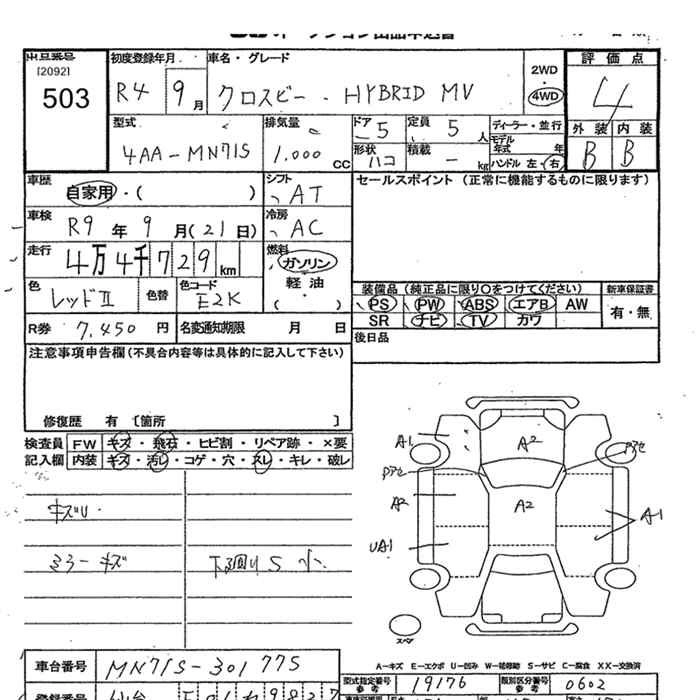 出品番号
[2092]
503
初度登録年月
R4 9月
車名・グレード
クロスビー . HYBRID MV
2WD
4WD
評価点
4
外装 内装
B B
型式
4AA-MN71S
排気量
1.000 CC
ドア 5
定員 5 人
形状 ハコ
積載 - kg
ディーラー・並行
モデル年式 年
ハンドル 左・右
車歴
自家用・( )
車検
R9年9月(21日)
走行
4万4千729km
色
レッドII
色替
色コード
E2K
R券 7.450 円
名変通知期限 月 日
シフト
AT
冷房
AC
燃料
ガソリン
軽油
( )
セールスポイント (正常に機能するものに限ります)
装備品 (純正品に限り○をつけてください)
PS PW ABS エアB AW
SR ナビ TV カワ
新車保証書
有・無
後日品
注意事項申告欄(不具合内容等は具体的に記入して下さい)
修復歴 有 〔箇所 〕
検査員記入欄
FW キズ・飛石・ヒビ割・リペア跡・×要
内装 キズ・汚レ・コゲ・穴・スレ・キレ・破レ
キズU.
ミラーキズ
下廻りS小.
A1
A2
Pアセ
Pアセ
A2
A2
A1
UA1
スペア
A-キズ E-エクボ U-凹み W-補修跡 S-サビ C-腐食 XX-交換済
車台番号
MN71S-301775
型式指定番号
参考
19176
類別区分番号
参考
0602
登録番号
仙台